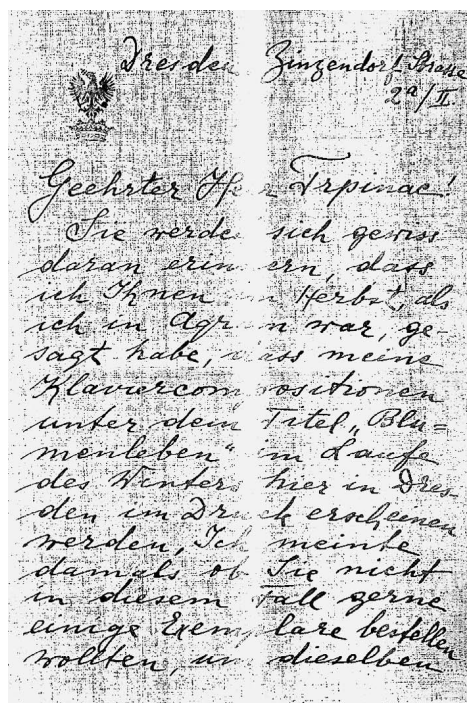 Dresden Zinzendorf-Strasse
2a/II.
Geehrter Herr Trpinac!
Sie werden sich gewiss
daran erinnern, dass
ich Ihnen im Herbst, als
ich in Agram war, ge-
sagt habe, dass meine
Klaviercompositionen
unter dem Titel „Blu=
menleben“ im Laufe
des Winters hier in Dres-
den im Druck erscheinen
werden, Ich meinte
damals ob Sie nicht
in diesem Fall gerne
einige Exemplare bestellen
wollten, um dieselben